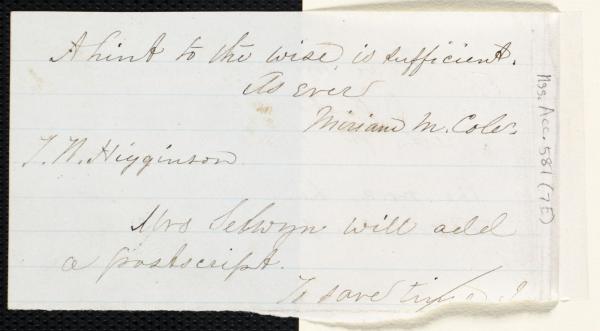 A hint to the wise is sufficient.
As ever
Miriam M. Cole.
T. W. Higginson
Mrs Selwyn will add
a postscript.
To save time I
Mss. Acc. 581 (7E)